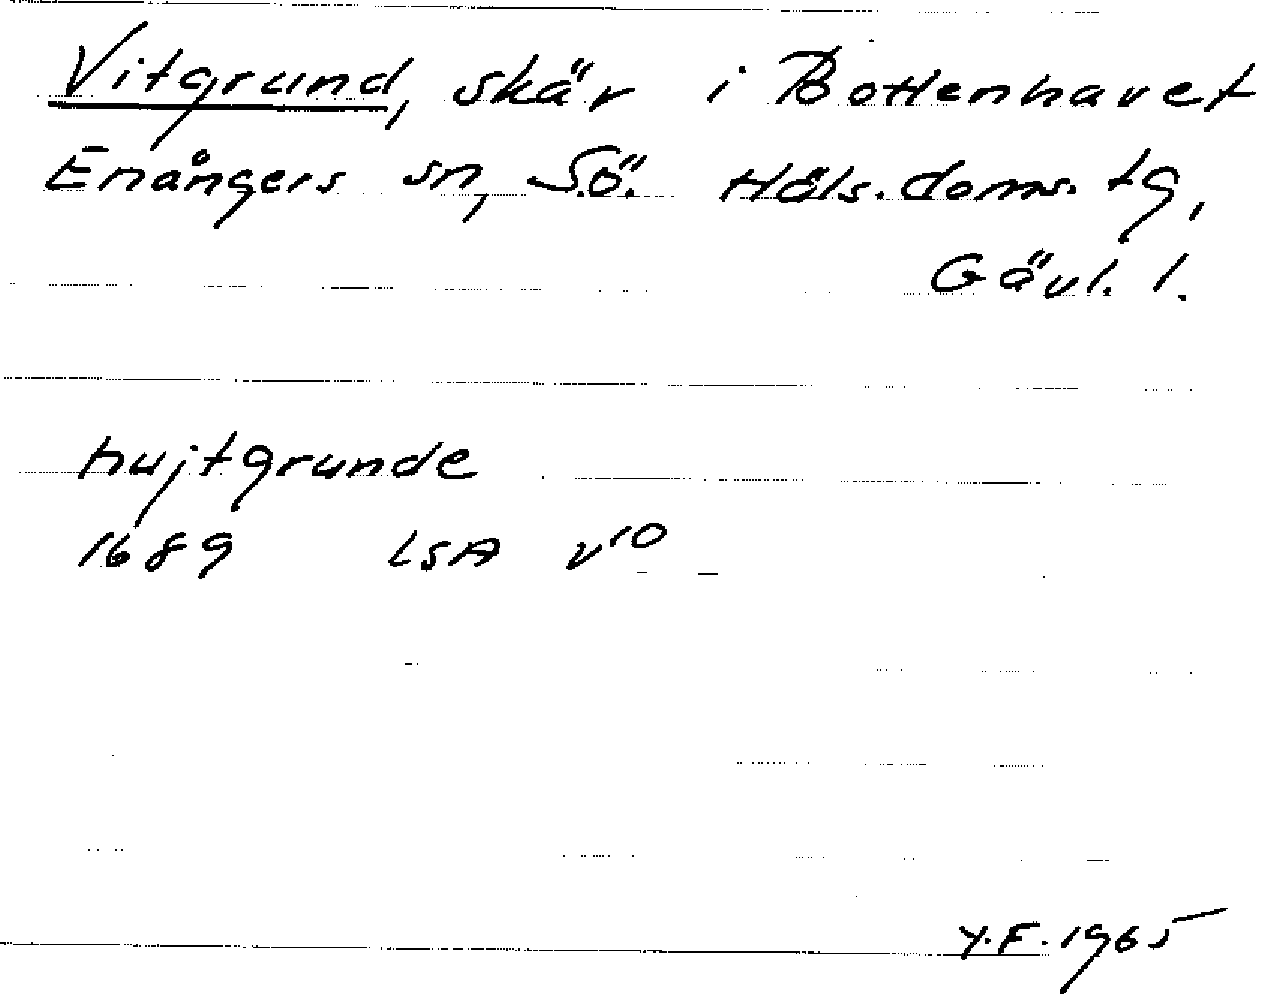 Vitgrund, skär i Bottenhavet
Enångers sn, S.ö. Häls. doms. tg,
Gävl. l.
hujtgrunde
1689 LSA v10
Y.F. 1965